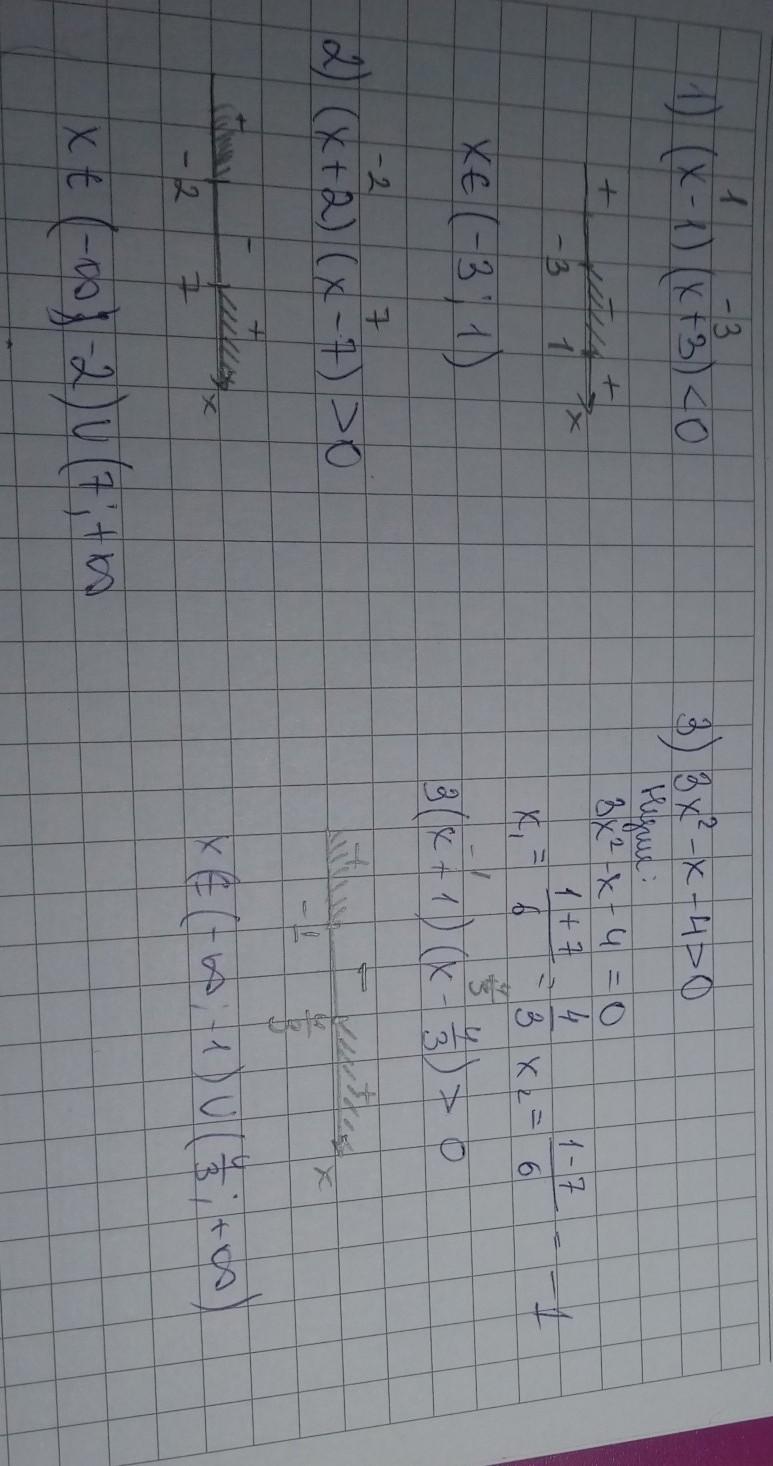 1) (x-1)(x+3)<0
1 -3
+ - +
-3 1 x
x∈(-3;1)
2) (x+2)(x-7)>0
-2 7
+ - +
-2 7 x
x∈(-∞;-2)∪(7;+∞
3) 3x²-x-4>0
Нули:
3x²-x-4=0
x₁=(1+7)/6=4/3 x₂=(1-7)/6=-1
-1 4/3
3(x+1)(x-4/3)>0
+ - +
-1 4/3 x
x∈(-∞;-1)∪(4/3;+∞)